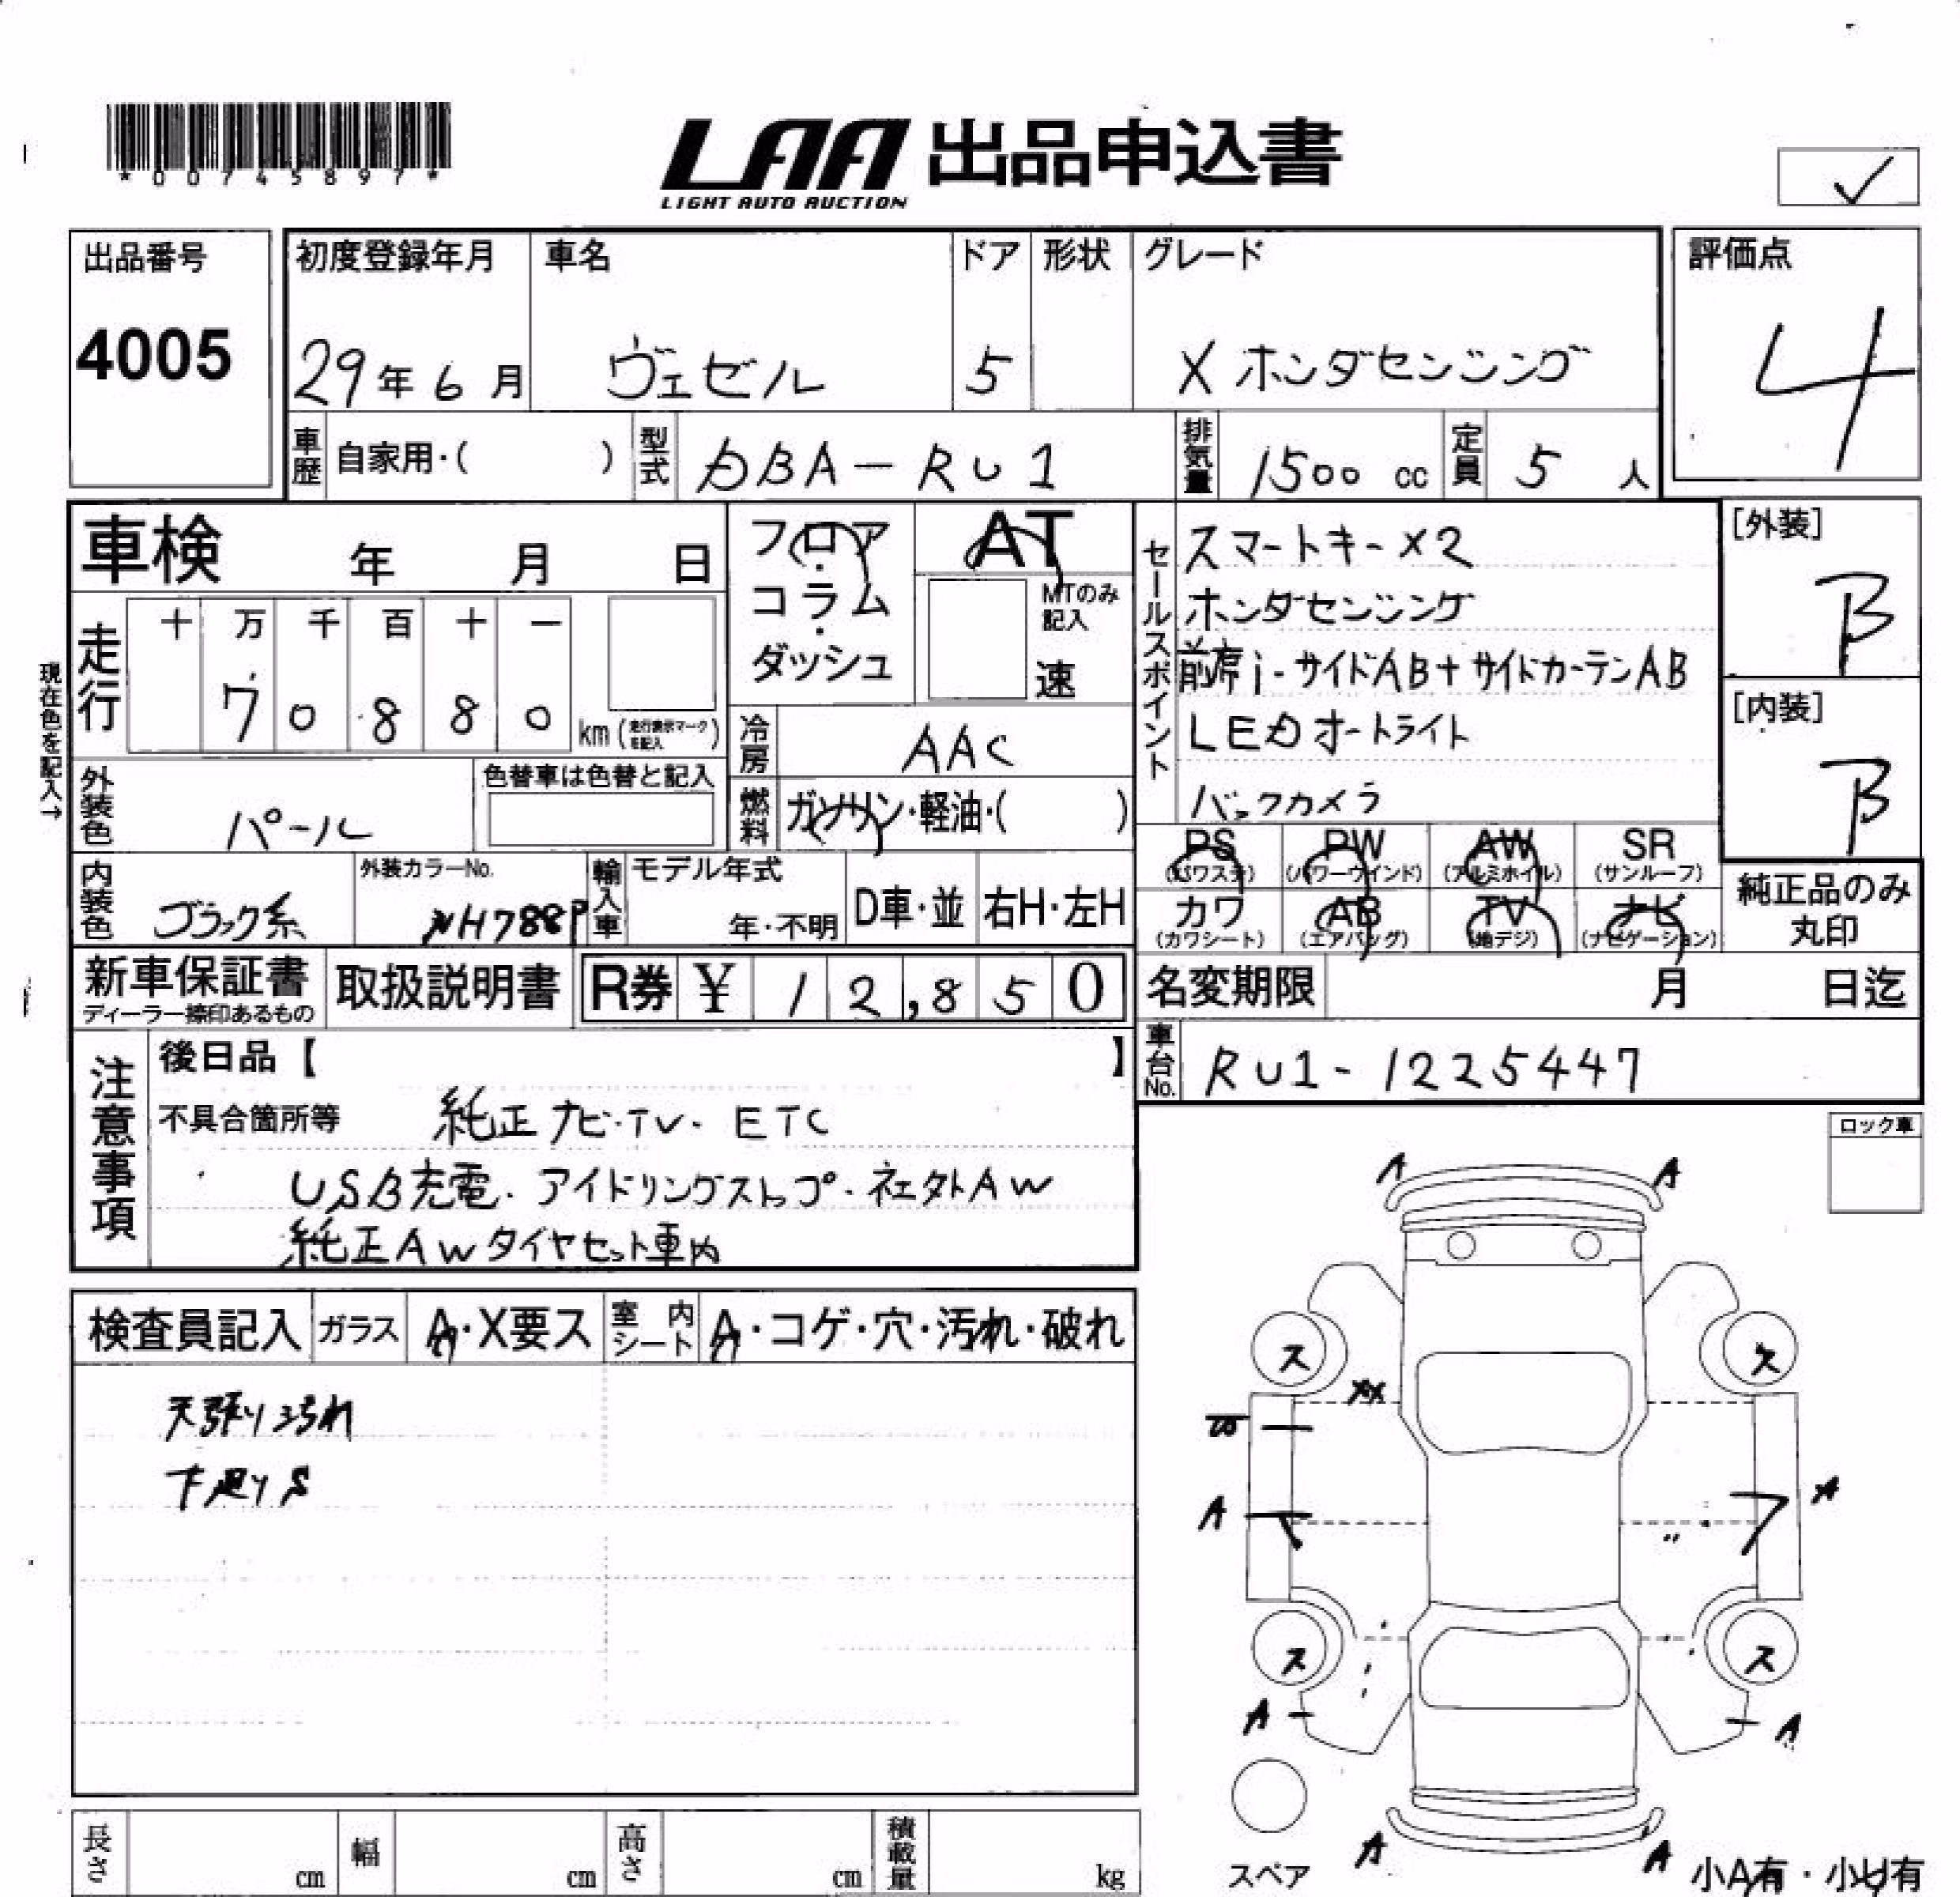 *00745897*
LAA 出品申込書
LIGHT AUTO AUCTION
出品番号
4005
初度登録年月
29年6月
車名
ヴェゼル
ドア
5
形状
グレード
X ホンダセンシング
評価点
4
車歴 自家用・( )
型式 DBA-RU1
排気量 1500 cc
定員 5 人
車検 年 月 日
フロア・コラム・ダッシュ
AT
MTのみ記入
速
セールスポイント
スマートキー×2
ホンダセンシング
前席i-サイドAB+サイドカーテンAB
LEDオートライト
バックカメラ
[外装]
B
[内装]
B
現在色を記入→
走行
十 万 千 百 十 一
7 0 8 8 0 km (走行表示マークを記入)
冷房 AAC
外装色 パール
色替車は色替と記入
燃料 ガソリン・軽油・( )
PS (パワステ) PW (パワーウインド) AW (アルミホイル) SR (サンルーフ)
カワ (カワシート) AB (エアバッグ) TV (地デジ) ナビ (ナビゲーション)
純正品のみ丸印
内装色 ブラック系
外装カラーNo. NH788P
輸入車 モデル年式 年・不明 D車・並 右H・左H
新車保証書
ディーラー捺印あるもの
取扱説明書
R券 ¥ 12,850
名変期限 月 日迄
車台No. RU1-1225447
注意事項
後日品【 】
不具合箇所等 純正ナビ・TV・ETC
USB充電・アイドリングストップ・社外AW
純正AWタイヤセット車内
ロック車
検査員記入 ガラス A・X要ス 室内シート A・コゲ・穴・汚れ・破れ
天張り汚れ
下廻りS
A A
ス ス
XX
A A
ス ス
A A
A A
スペア
小A有・小U有
長さ cm 幅 cm 高さ cm 積載量 kg